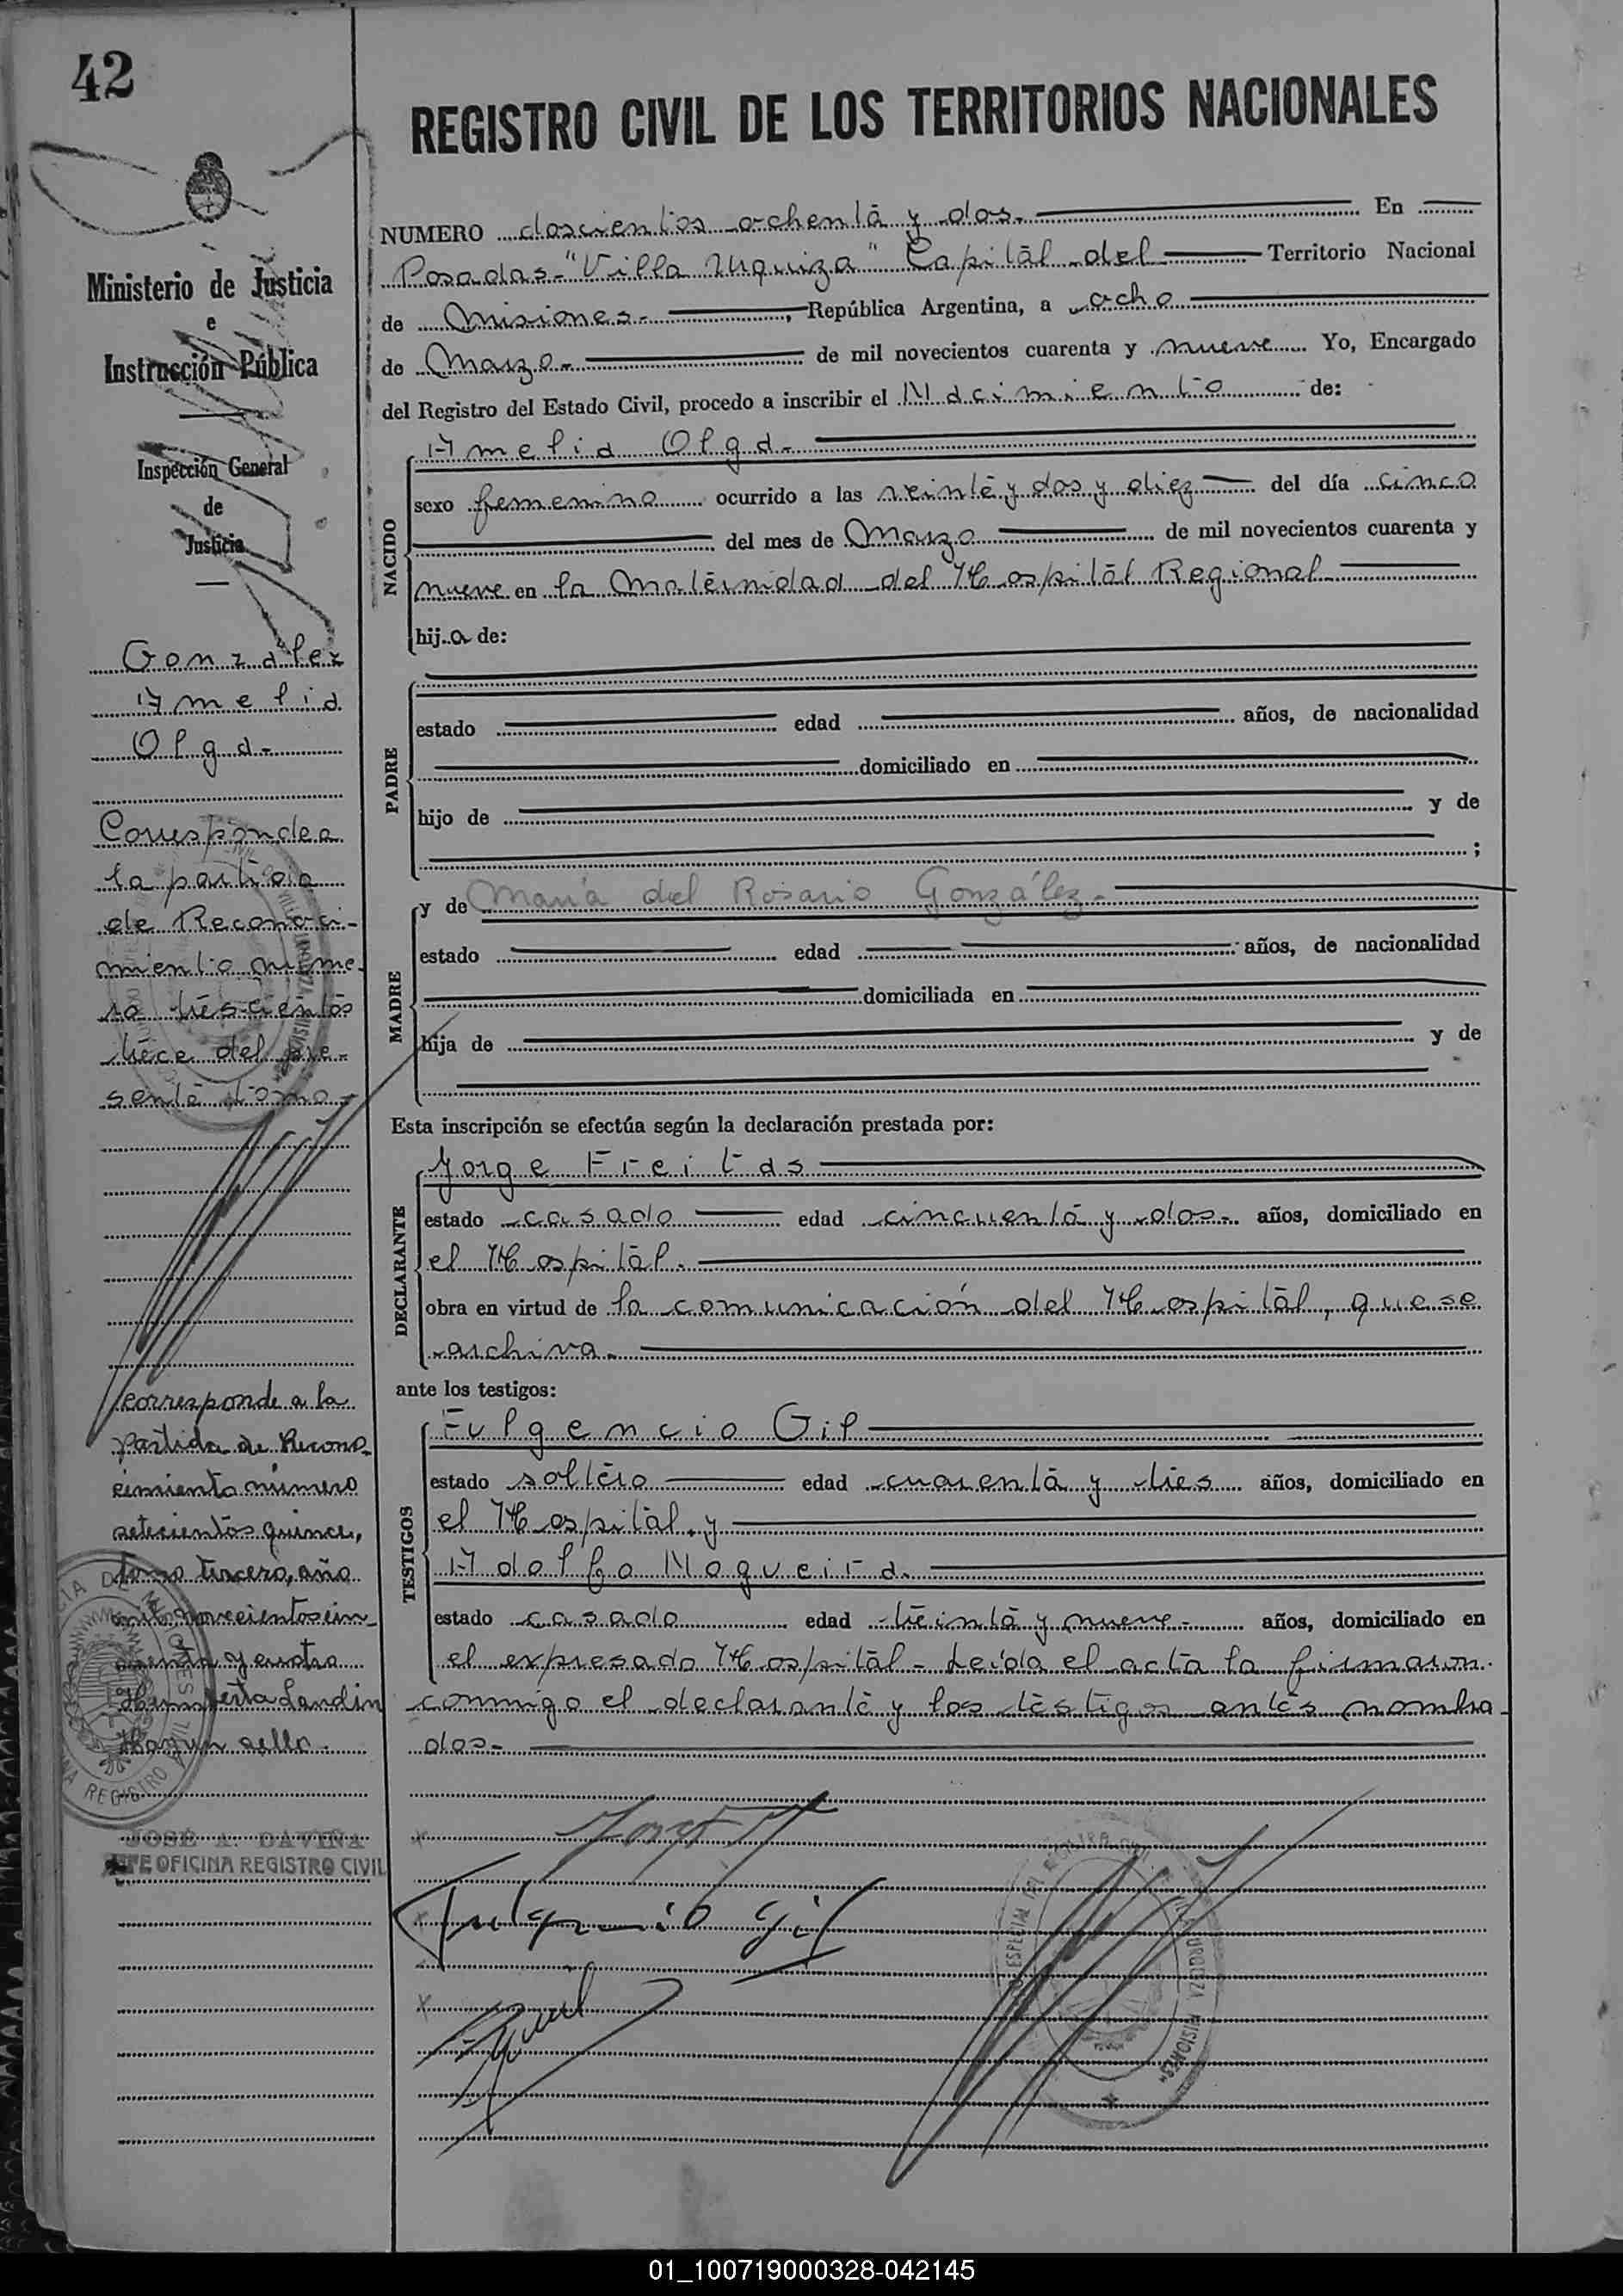 42
REGISTRO CIVIL DE LOS TERRITORIOS NACIONALES
Ministerio de Justicia
e
Instrucción Pública
Inspección General
de
Justicia
González
Amelia
Olga.-
Corresponde a
la partida
de Reconoci-
miento núme-
ro trescientos
trece del pre-
sente tomo.-
corresponde a la
partida de Recono-
cimiento número
setecientos quince,
tomo tercero, año
mil novecientos cin-
cuenta y cuatro
Landin
sello.
JOSÉ A. DAVIÑA
JEFE OFICINA REGISTRO CIVIL
NUMERO doscientos ochenta y dos.- En
Posadas-"Villa Urquiza" Capital del Territorio Nacional
de Misiones.- , República Argentina, a ocho
de Marzo.- de mil novecientos cuarenta y nueve Yo, Encargado
del Registro del Estado Civil, procedo a inscribir el Nacimiento de:
NACIDO
Amelia Olga.-
sexo femenino ocurrido a las veinte y dos y diez del día cinco
del mes de Marzo de mil novecientos cuarenta y
nueve en la Maternidad del Hospital Regional
hij a de:
PADRE
estado edad años, de nacionalidad
domiciliado en
hijo de y de
;
MADRE
y de María del Rosario González.-
estado edad años, de nacionalidad
domiciliada en
hija de y de
Esta inscripción se efectúa según la declaración prestada por:
DECLARANTE
Jorge Freitas
estado casado edad cincuenta y dos.- años, domiciliado en
el Hospital.
obra en virtud de la comunicación del Hospital, que se
archiva.
ante los testigos:
TESTIGOS
Fulgencio Gil
estado soltero edad cuarenta y tres años, domiciliado en
el Hospital. y
Adolfo Nogueira.
estado casado edad treinta y nueve.- años, domiciliado en
el expresado Hospital - Leída el acta la firmaron
conmigo el declarante y los testigos antes nombra-
dos.-
Fulgencio Gil
01_100719000328-042145